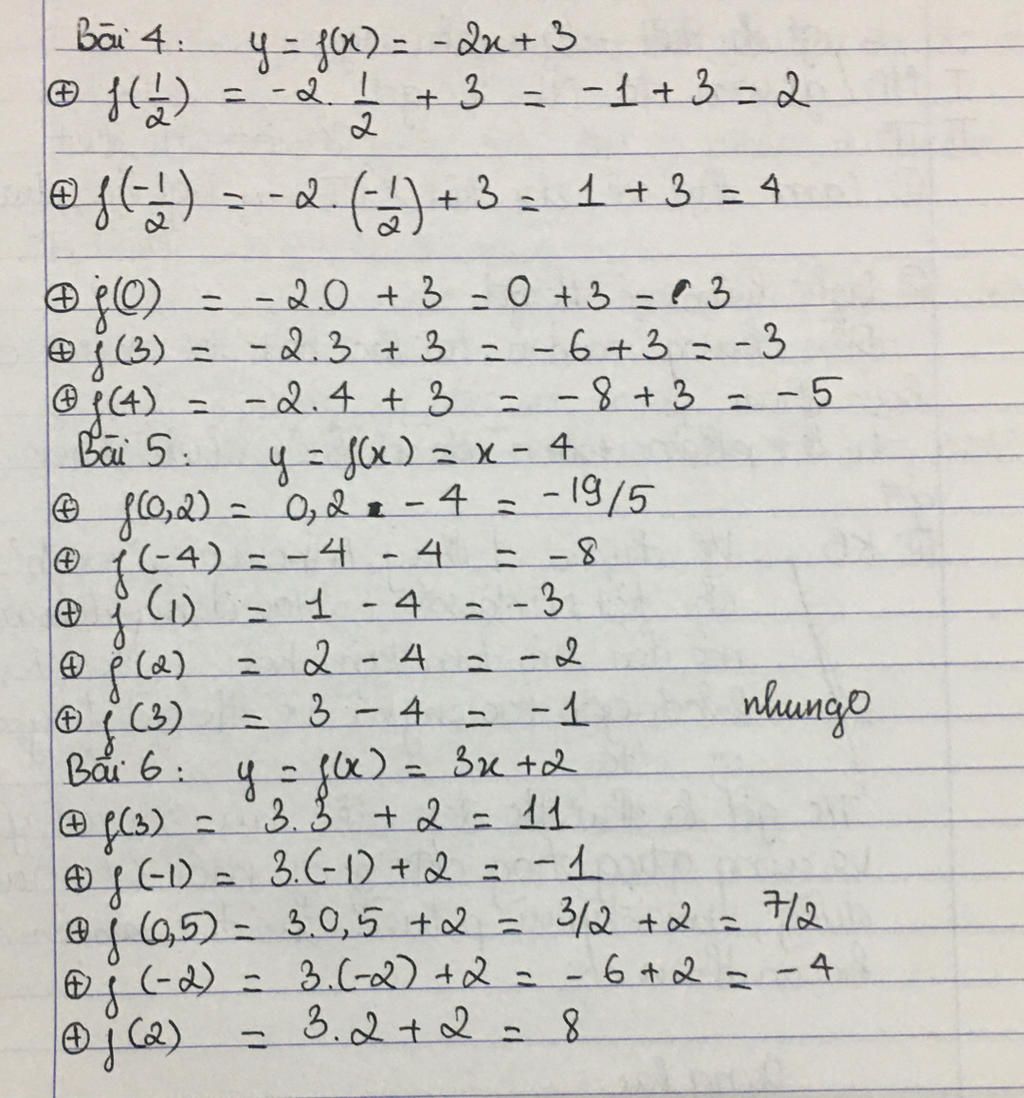 Bài 4: y = f(x) = -2x + 3
⊕ f(1/2) = -2. 1/2 + 3 = -1 + 3 = 2
⊕ f(-1/2) = -2. (-1/2) + 3 = 1 + 3 = 4
⊕ f(0) = -2.0 + 3 = 0 + 3 = 3
⊕ f(3) = -2.3 + 3 = -6 + 3 = -3
⊕ f(4) = -2.4 + 3 = -8 + 3 = -5
Bài 5: y = f(x) = x - 4
⊕ f(0,2) = 0,2 - 4 = -19/5
⊕ f(-4) = -4 - 4 = -8
⊕ f(1) = 1 - 4 = -3
⊕ f(2) = 2 - 4 = -2
⊕ f(3) = 3 - 4 = -1 nhung0
Bài 6: y = f(x) = 3x + 2
⊕ f(3) = 3.3 + 2 = 11
⊕ f(-1) = 3.(-1) + 2 = -1
⊕ f(0,5) = 3.0,5 + 2 = 3/2 + 2 = 7/2
⊕ f(-2) = 3.(-2) + 2 = -6 + 2 = -4
⊕ f(2) = 3.2 + 2 = 8